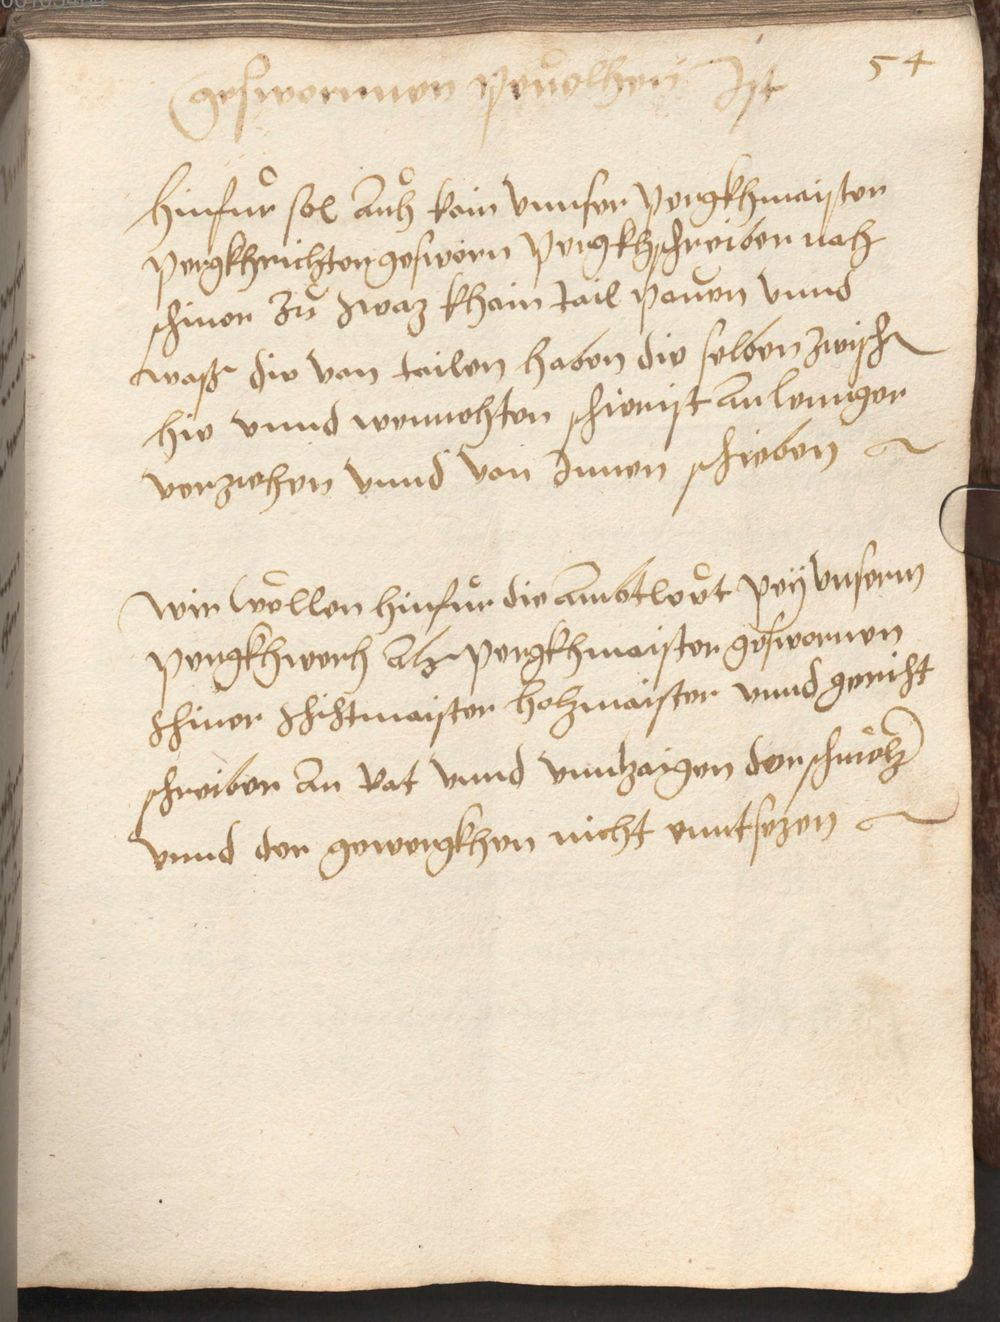 54
geswornnen pevolhen Ist
Hinfůr sol auch kain unnser pergkhmaister
pergkhrichter geswörn pergkhschreiber noch
schiner zu Swaz khain tail pauen unnd
was die van tailen haben die selben zwischn
hie unnd weinnechten schierist
verziehen unnd von Innen schieben
Wir wöllen hinfůr die ambtlewt pey unserm
pergkhwerch als pergkhmaister geswornen
Schiner Schichtmaister holzmaister unnd gericht
schreiber an Rat unnd der schmelzer
unnd der gewergkhen nicht enntsezen